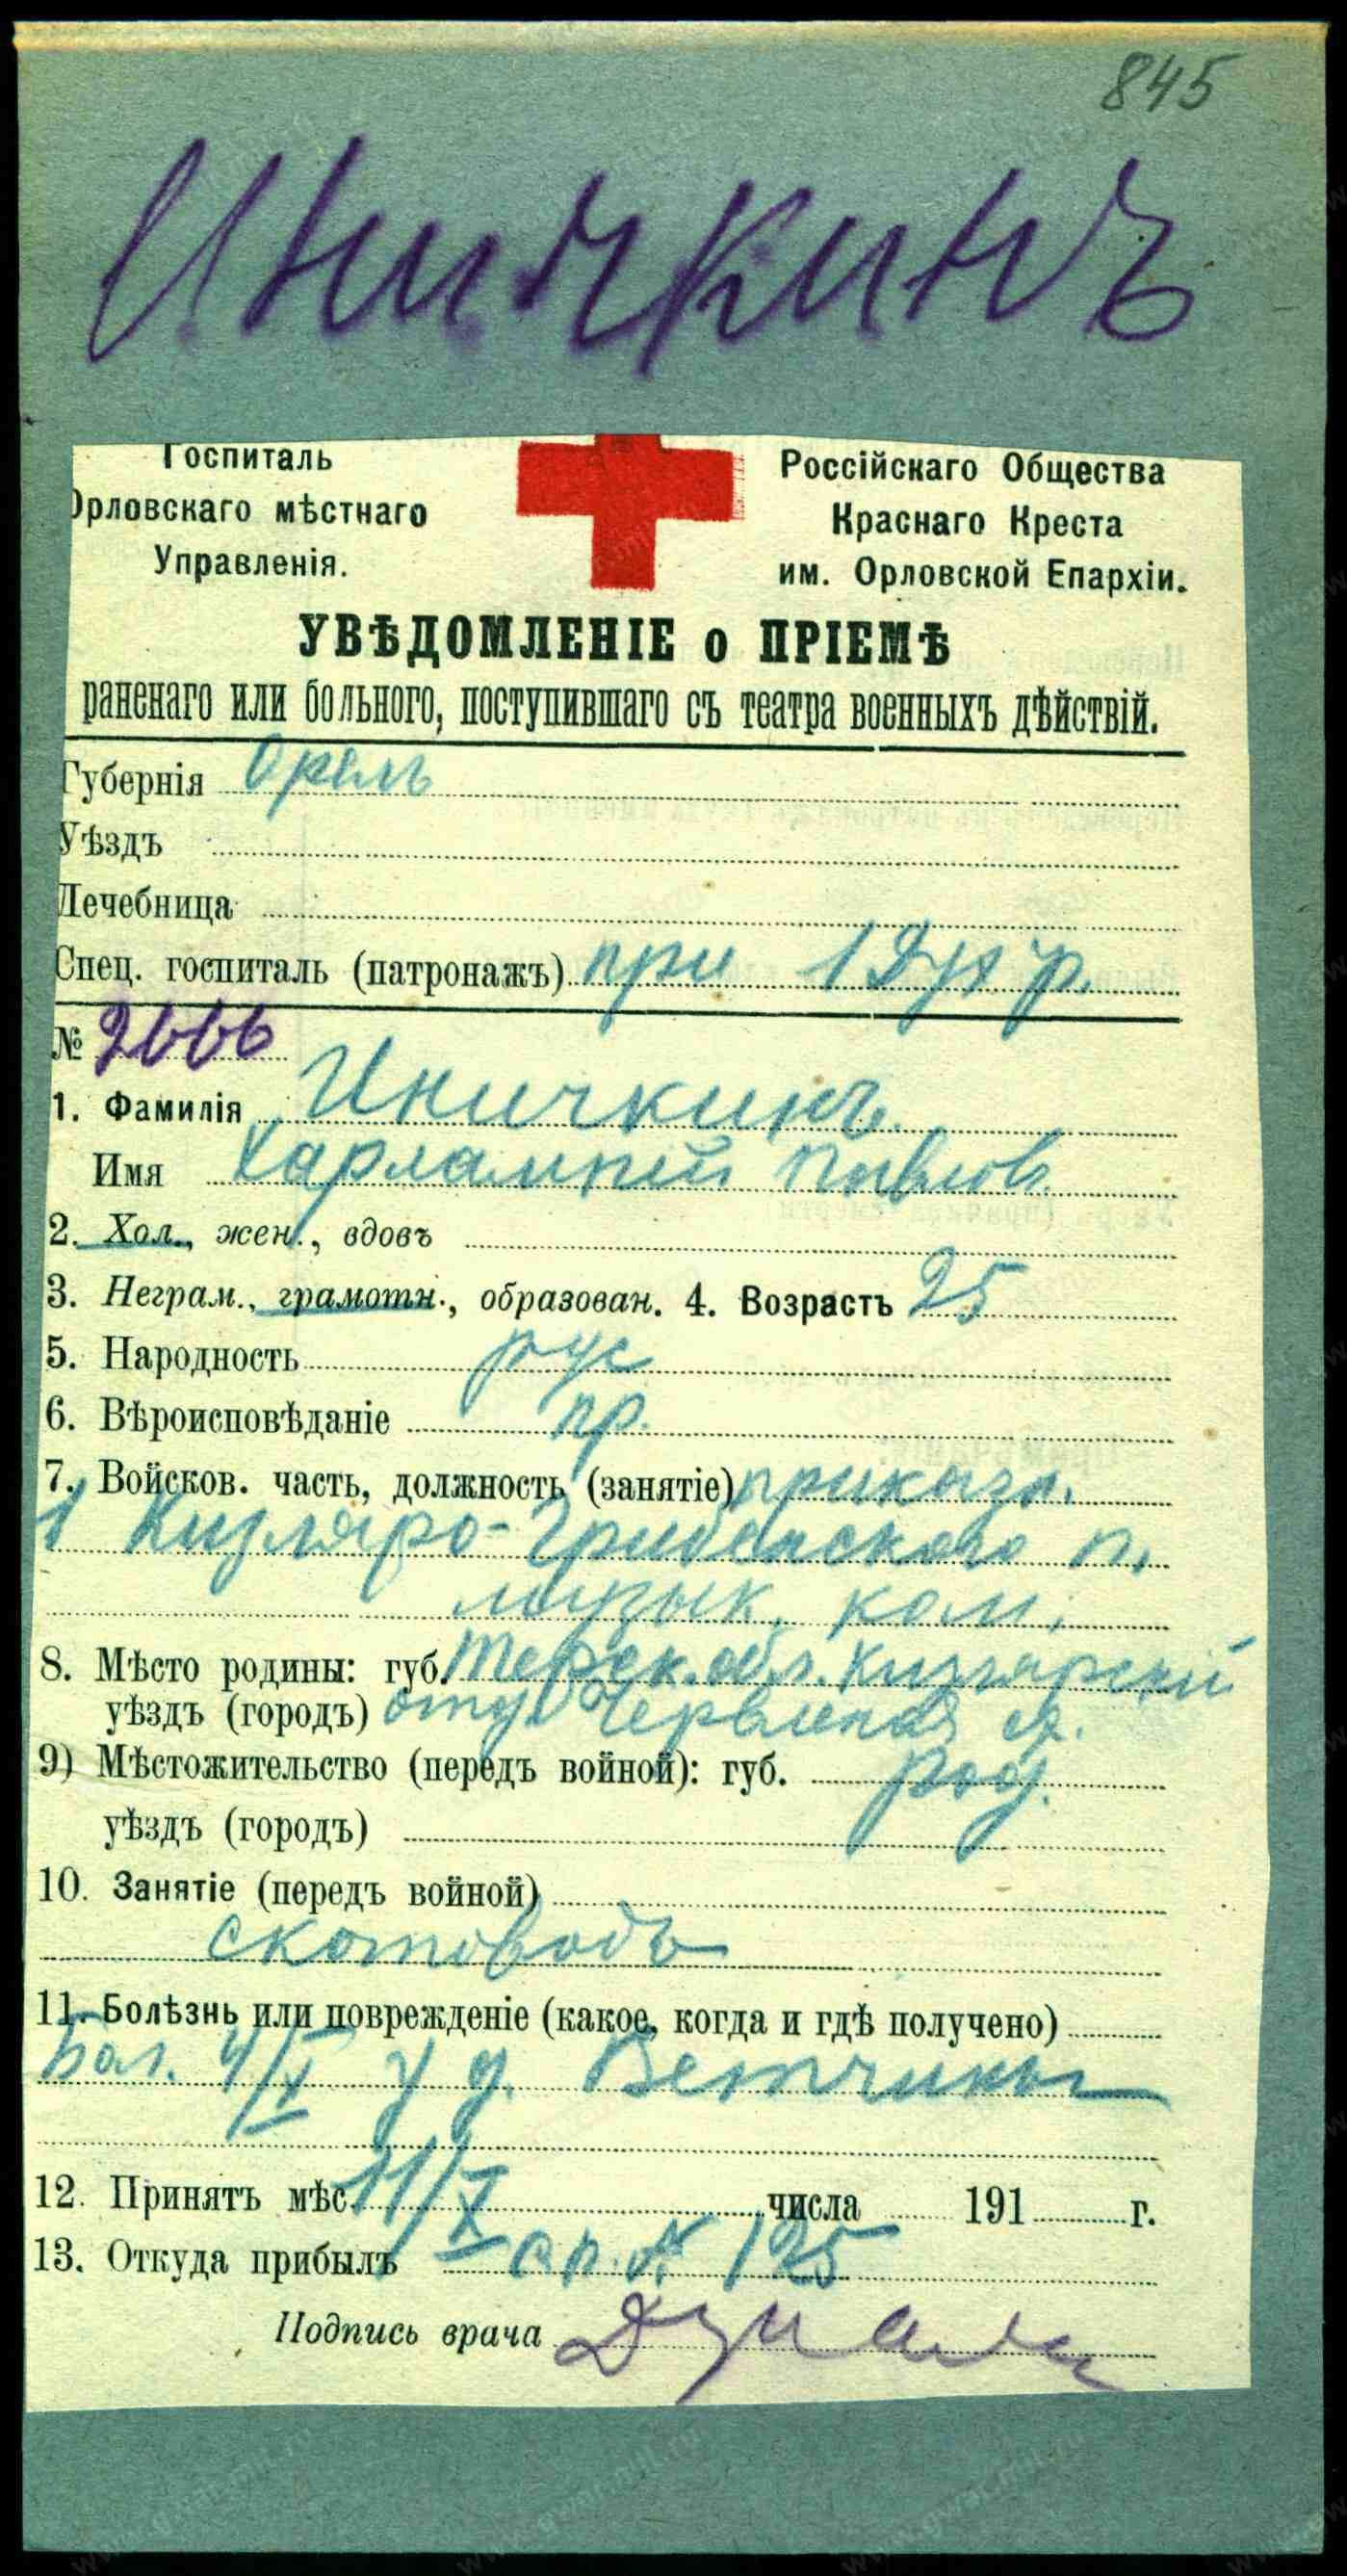 845
Иничкинъ
Госпиталь
Орловскаго мѣстнаго
Управленія.
Россійскаго Общества
Краснаго Креста
им. Орловской Епархіи.
УВѢДОМЛЕНІЕ о ПРІЕМѢ
раненаго или больного, поступившаго съ театра военныхъ дѣйствій.
Губернія Орелъ
Уѣздъ
Лечебница
Спец. госпиталь (патронажъ) при 1 Дух. р.
№ 2666
1. Фамилія Иничкинъ
Имя Харлампій Павлов.
2. Хол., жен., вдовъ
3. Неграм., грамотн., образован. 4. Возрастъ 25
5. Народность рус
6. Вѣроисповѣданіе пр.
7. Войсков. часть, должность (занятіе) приказн.
1 Кизляро-Гребенского п.
музык. ком.
8. Мѣсто родины: губ. Терск. обл. Кизлярскій
уѣздъ (городъ) отд. Червленая ст.
9) Мѣстожительство (передъ войной): губ. род.
уѣздъ (городъ)
10. Занятіе (передъ войной)
скотоводъ
11. Болѣзнь или поврежденіе (какое, когда и гдѣ получено)
Бол. 4/X у д. Ветчины
12. Принятъ мѣс. 11/X числа 191 г.
13. Откуда прибылъ с. п. № 125
Подпись врача